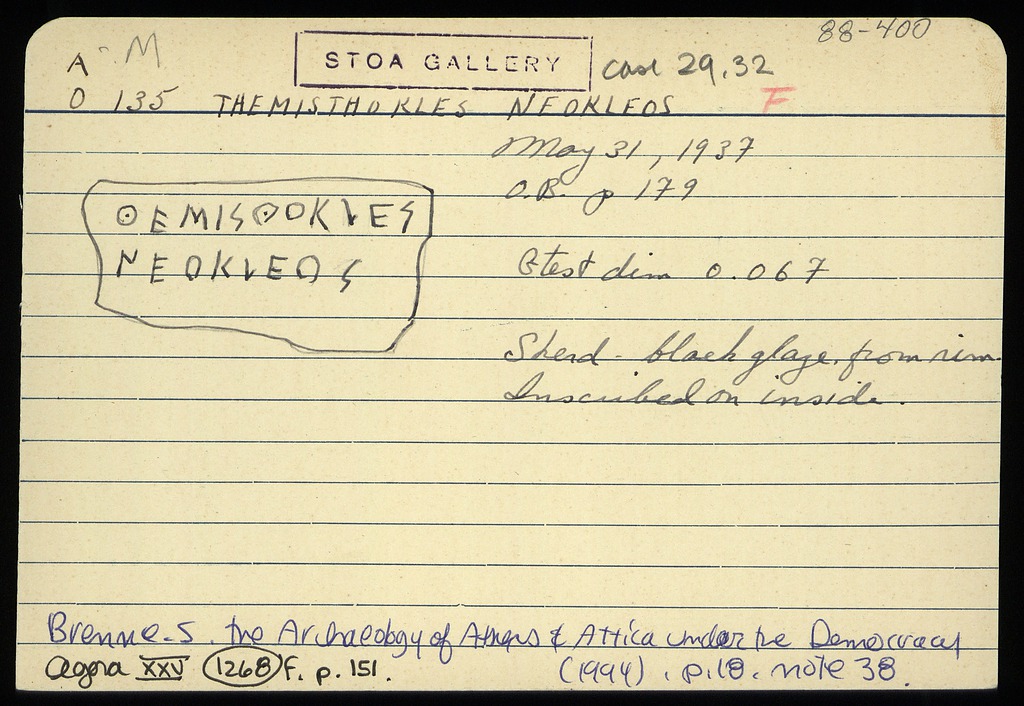 88-400
A M STOA GALLERY case 29,32
O 135 THEMISTHOKLES NEOKLEOS F
May 31, 1937
O.B. p 179
ΘEMISΘOKLES
NEOKLEOS
Gtest dim 0.067
Sherd - black glaze, from rim.
Inscribed on inside.
Brenne. S. the Archaeology of Athens & Attica under the Democracy
Agora XXV 1268 f. p. 151. (1994). p.18. note 38.